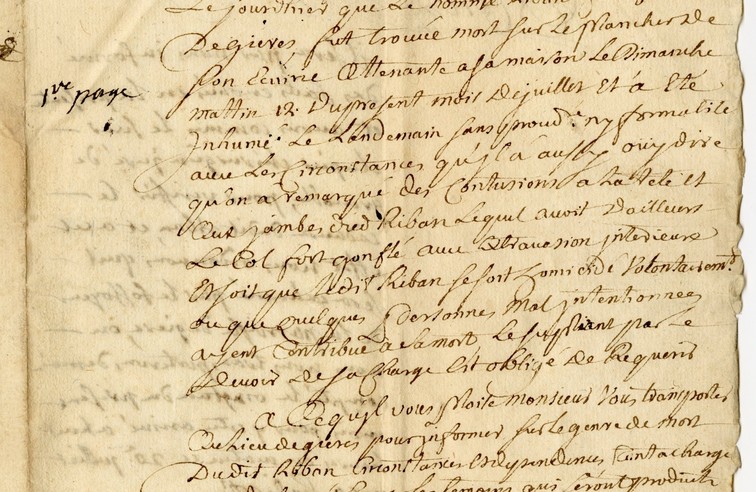 Le jourdhier que Le nommé Riban
De gieres fut trouvé mort sur Le plancher de
son Ecurie Attenante a sa maison Le Dimanche
1.re page
mattin 12. Du present mois De juillet Et a Eté
Inhumé Le Lendemain sans proced.e ny formalité
avec Les Circonstances qu'il a aussy ouy dire
qu'on a remarqué des Contusions a La teté et
aux jambes dud Riban Lequel avoit d'ailleurs
Le Col fort gonflé avec Extravasion interieure
Et soit que ledit Riban se soit homicidé Volontairem.t
ou que quelques personnes Mal intentionnees
ayent Contribué a sa mort Le supliant par Le
devoir de sa Charge Est obligé de Requerir
A Cequ'il vous plaise monsieur Vous transporter
Au Lieu de gieres pour informer sur Le genre de mort
Dudit Riban Circonstances Et dependences tant a charge
temoins qui seront produits